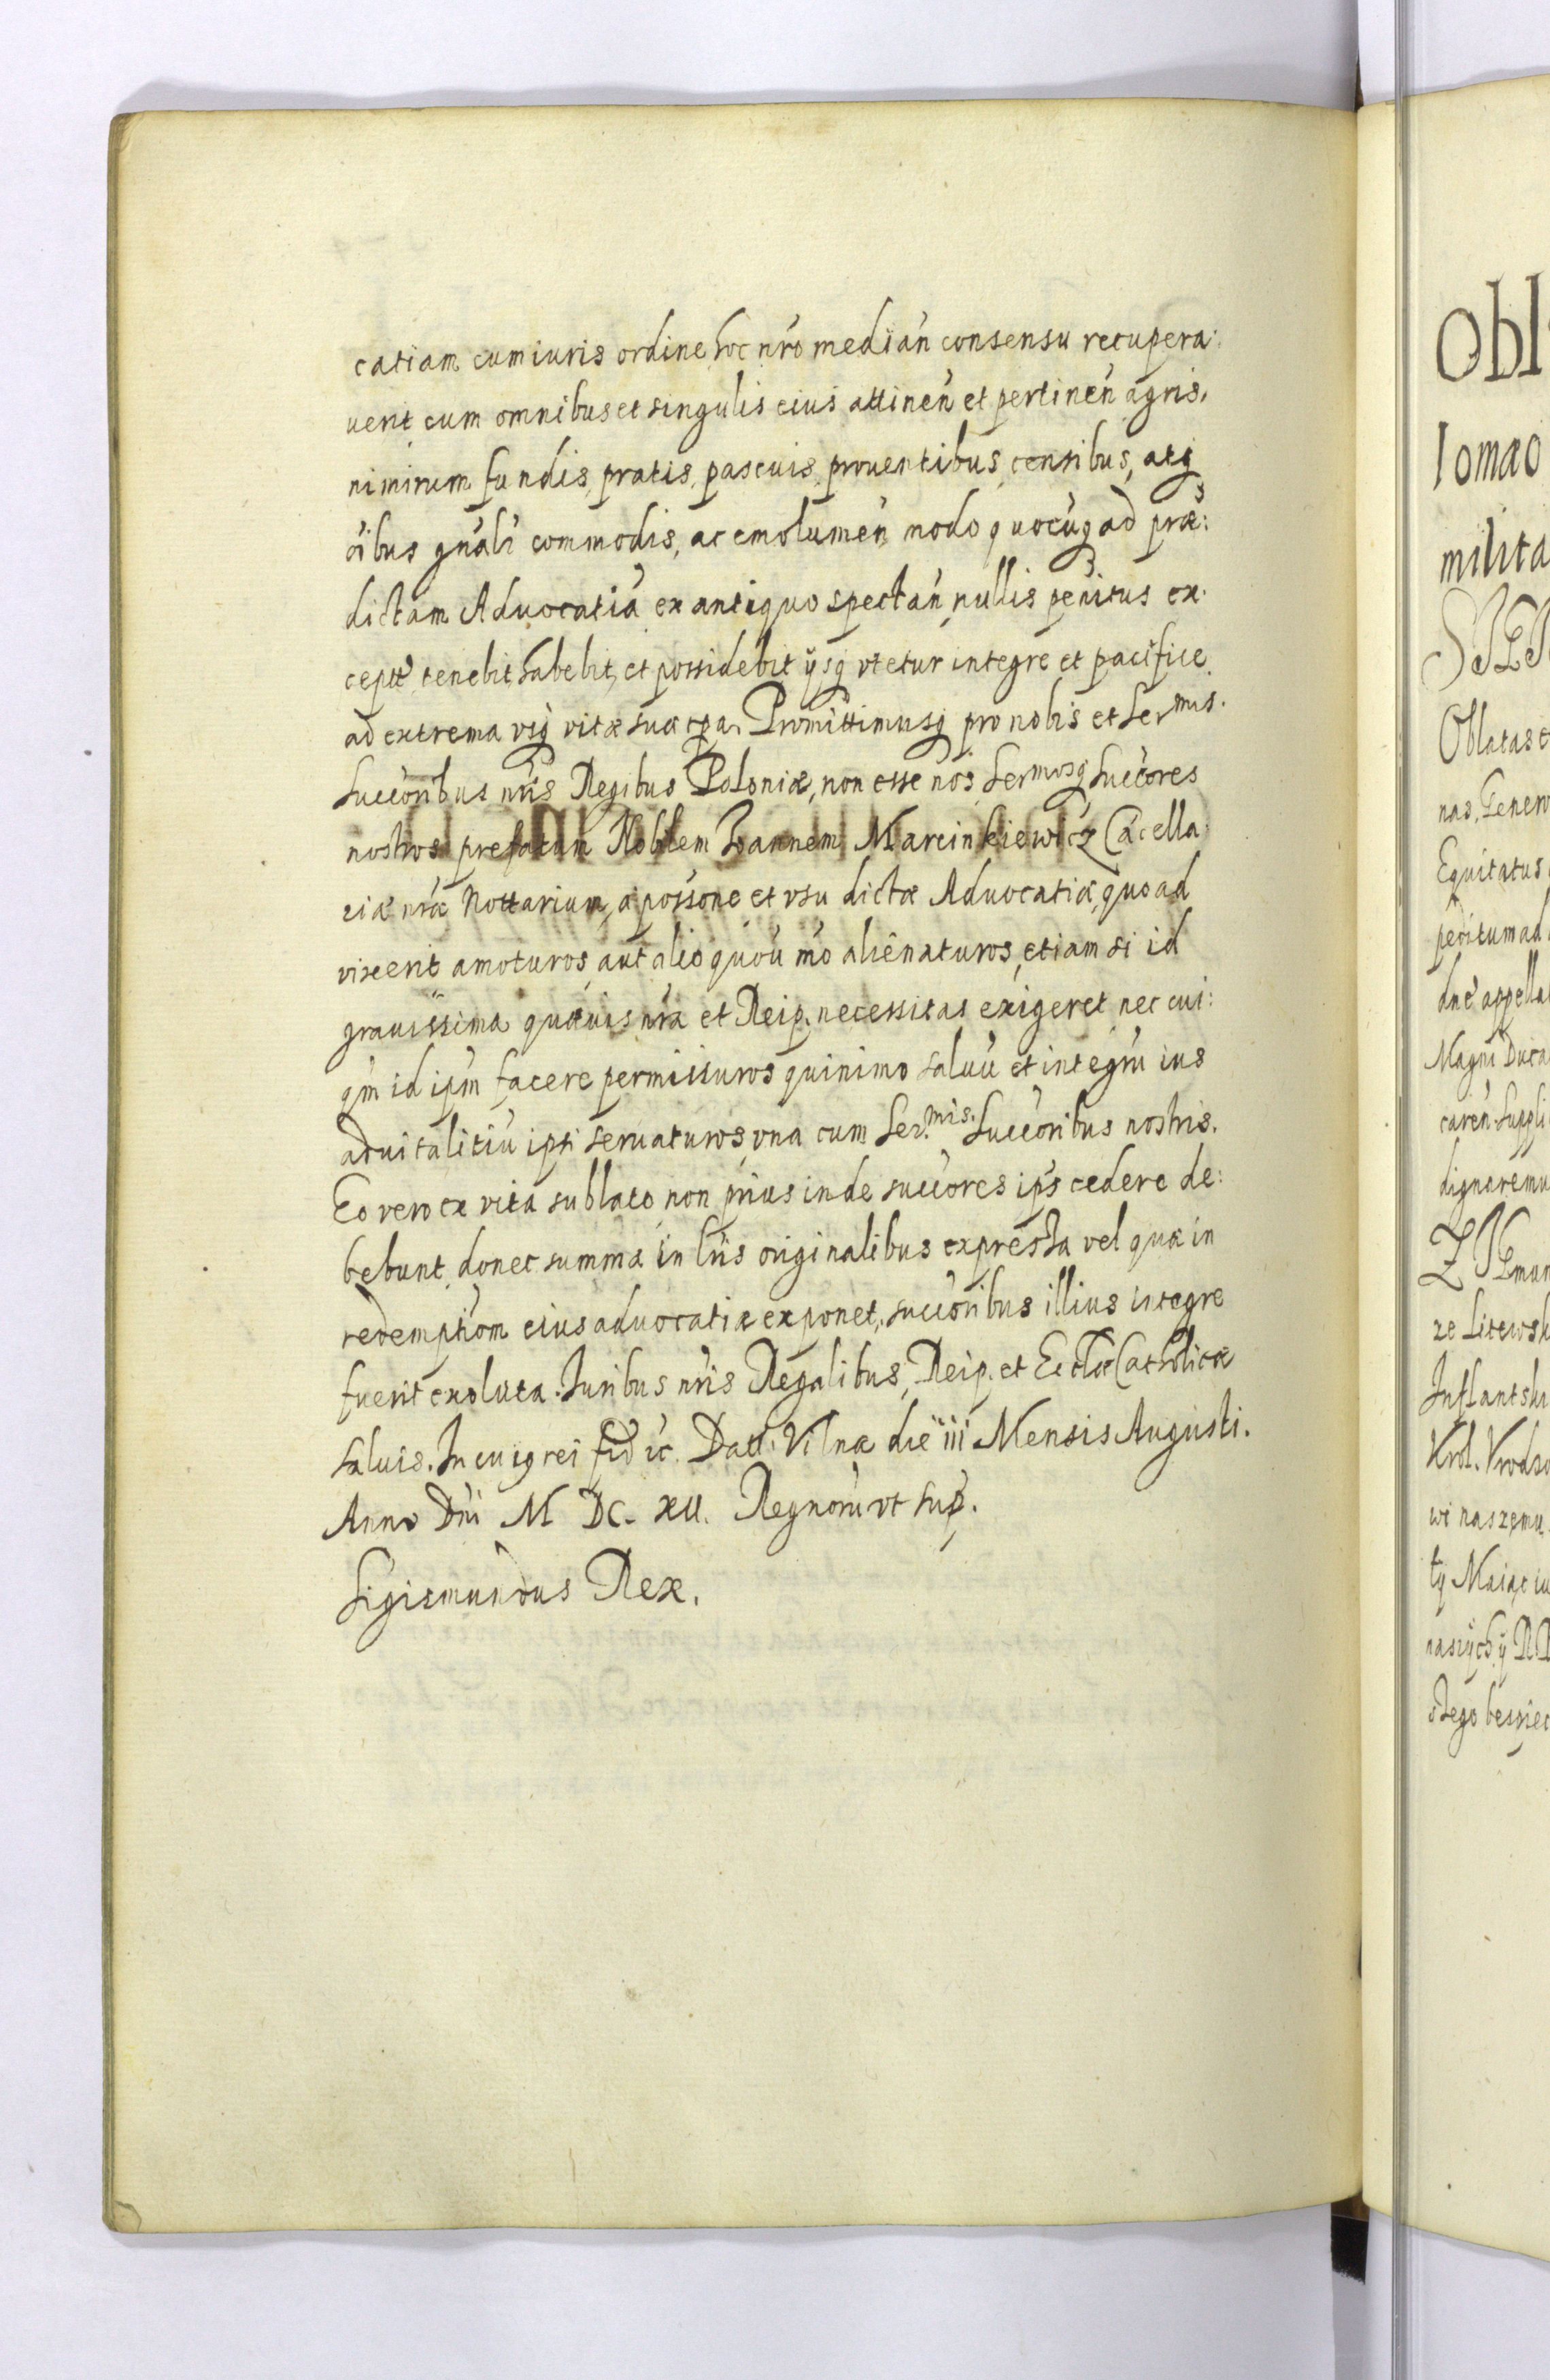 catiam cum iuris ordine hoc nr̃o median̄ consensu recupera:
uerit cum omnibus et singulis eius attinen̄ et pertinen̄ agris,
nimirum fundis, pratis, pascuis, prouentibus, censibus, atq3
oībus gn̄ali commodis, ac emolumen̄ modo quocūq3 ad præ:
dictam Aduocatiā ex antiquo spectan̄, nullis penitus ex:
ceptt̃ tenebit, habebit, et possidebit ÿsq vtetur integre et pacifice
ad extrema vsq vitæ suæ tpa. Promittimusq pro nobis et Ser mis.
Succoribus nr̃is Regibus Poloniæ, non esse nos Ser mosq Succores
nostros prefatum Noblem Ioannem Marcinkiewicz Cācella:
riæ nr̃æ Nottarium, a possone et vsu dictæ Aduocatiæ, quoad
vixerit amoturos, aut alio quoū mō alienaturos, etiam si id
grauissima quæuis nr̃a et Reip. necessitas exigeret nec cui:
qm̄ id ipm̄ facere permissuros quinimo saluū et integrū ius
aduitalitiū ipsi seruaturos, vna cum Ser. mis. Succoribus nostris.
Eo vero ex vita sublato non prius inde succores ips̄ cedere de:
bebunt, donec summa in lr̃is originalibus expressa vel quæ in
redemptiom eius aduocatiæ exponet, succoribus illius integre
fuerit exoluta. Iuribus nr̃is Regalibus, Reip. et Eccl̃æ Catholicæ
saluis. In cuiq rei fid ic. Datt. Vilnæ die iii Mensis Augusti.
Anno Dn̄i M DC. XII. Regnorū vt sup.
Sigismundus Rex.
Obl
Iomao
milita
Oblatas e
nas, Gener
Equitatus
peditum ad
dn̄e appella
Magni Duca
caren̄. Suppli
dignaremu
ze Litewsk
Inflantski
Krol. Vrodzo
wi naszemu
stego bespiec